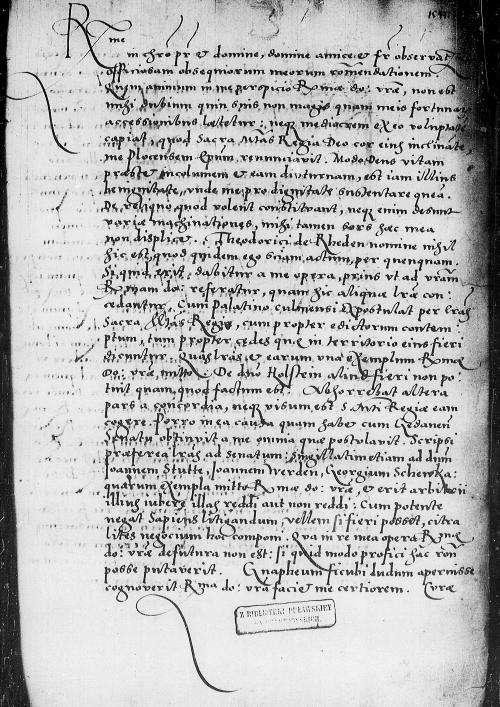 R me
in chro pr et domine, domine amice et fr observan
officiosam obsequiorum meorum comendationem.
Quem animum in me perspicio R mae do: vrae, non est
mihi dubium quin suis non magis quam meis fortunar
accessionibus laetetur: neque mediocrem ex eo volupta
capiat, quod Sacra Mtas Regia Deo cor eius inclinate
me Plocensem Epum renunciavit. Modo Deus vitam
praestet incolumem et eam diuturnam, est iam illius
benignitate, unde me pro dignitate sustentare queam.
De reliquo quod volent constituant, neque enim desunt
variae machinationes, mihi tamen sors haec mea
non displicet. Theodorici de Rheden nomine nihil
hic est, quod quidem ego sciam actum, per quenquam.
Si quid erit, dabitur a me opera, prius ut ad vram
R mam do: referatur, quam hic aliquae lrae con:
cedantur. Cum Palatino culmensi expostulat per lras
Sacra Mtas Regia, cum propter edictorum contem
ptum, tum propter caedes quae in territorio eius fieri
dicuntur. Quas lras et earum una exemplum R mae
do: vrae mitto. De duo Holstein aliud fieri non po:
tuit quam quod factum est. Abhorrebat altera
pars a concordia, neque visum est S Mti Regiae eam
cogere. Porro mea causa quam habet cum Gedanen
Senatu obtinuit a me omnia quae postulavit. Scripsi
praeterea lras ad Senatum: singillatim etiam ad dum
Joannem Stutte, Joannem Werden, Georgium Schewka:
quarum exempla mitto R mae do: vrae, et erit arbitrii
illius iubere illas reddi aut non reddi. Cum potente
negat Sapiens litigandum, vellem si fieri posset, citra
lites negocium hoc componi. Qua in re mea opera R mae
do: vrae defutura non est: si quid modo profici hac ron
posse putaverit. Gnapheum si cubi ludum aperuisse
cognoverit R ma do: vra faciet me certiorem. Curae
Z BIBLIOTEKI PUŁAWSKIEJ